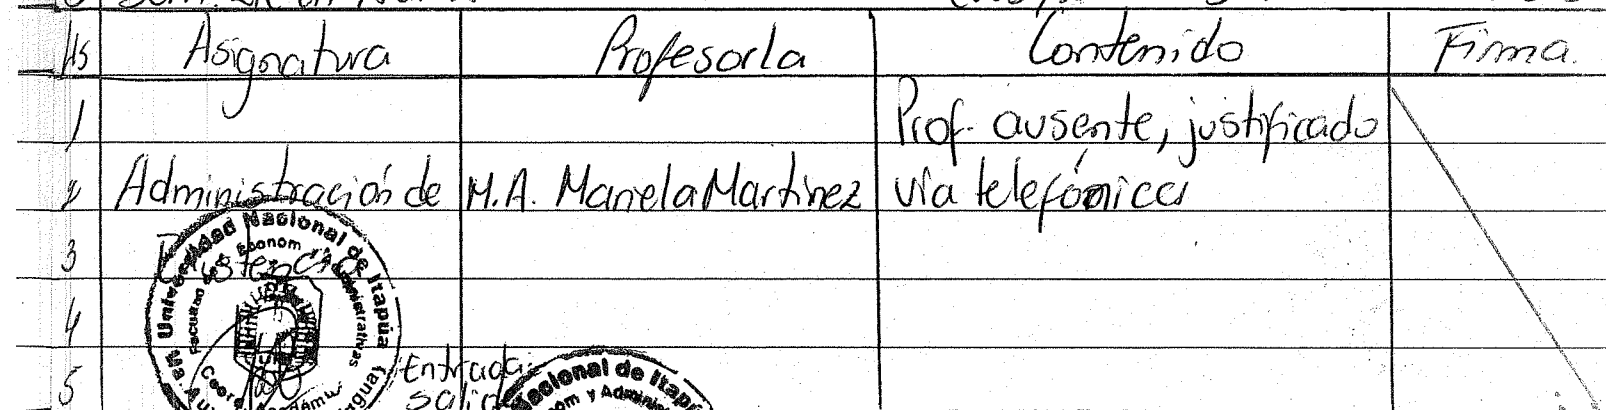 Hs Asignatura Profesor/a Contenido Firma.
1 Prof. ausente, justificado
2 Administración de M.A. Mariela Martinez vía telefónica
3
4
5 Entrada:
Universidad Nacional de Itapúa
Nacional de Itapúa